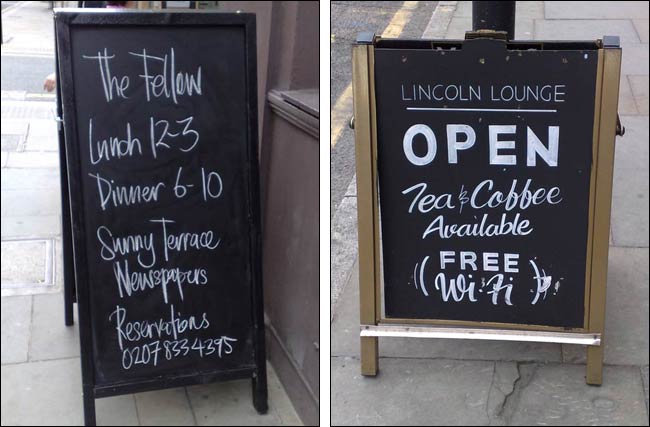 The Fellow
Lunch 12-3
Dinner 6-10
Sunny Terrace
Newspapers
Reservations
0207 833 4395
LINCOLN LOUNGE
OPEN
Tea & Coffee
Available
(FREE
Wi-Fi)